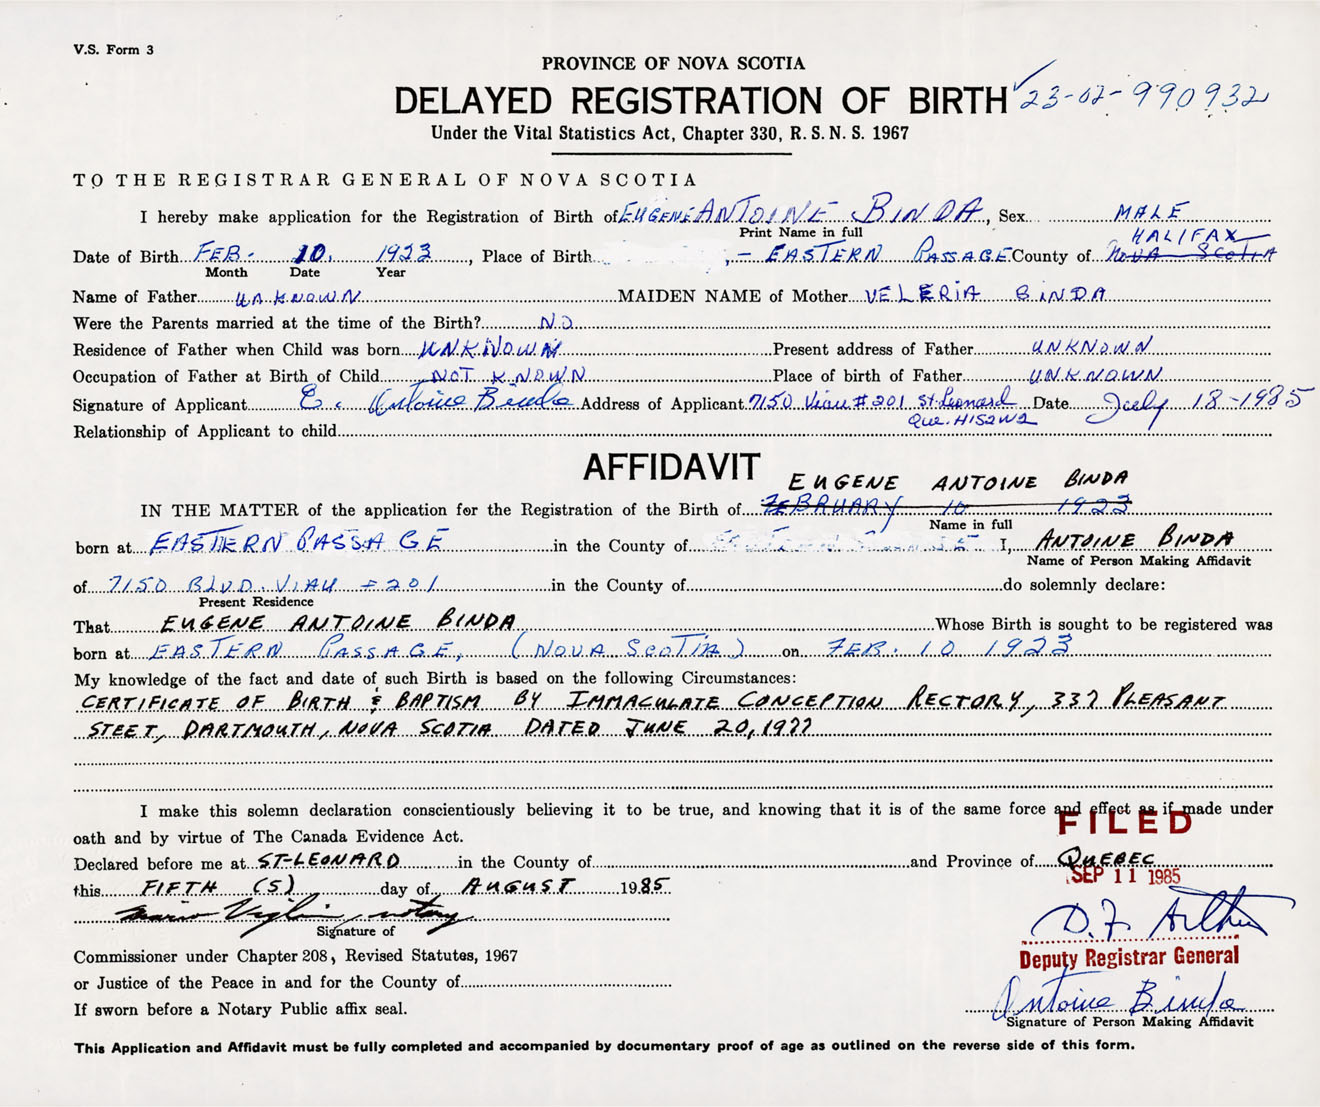 V.S. Form 3
PROVINCE OF NOVA SCOTIA
DELAYED REGISTRATION OF BIRTH 23-02-990932
Under the Vital Statistics Act, Chapter 330, R. S. N. S. 1967
TO THE REGISTRAR GENERAL OF NOVA SCOTIA
I hereby make application for the Registration of Birth of EUGENE ANTOINE BINDA, Sex MALE
Print Name in full
HALIFAX
Date of Birth FEB. 10, 1923, Place of Birth , - EASTERN PASSAGE County of NOVA SCOTIA
Month Date Year
Name of Father UNKNOWN MAIDEN NAME of Mother VELERIA BINDA
Were the Parents married at the time of the Birth? NO
Residence of Father when Child was born UNKNOWN Present address of Father UNKNOWN
Occupation of Father at Birth of Child NOT KNOWN Place of birth of Father UNKNOWN
Signature of Applicant E. Antoine Binda Address of Applicant 7150 Viau #201 St-Leonard Date July 18-1985
Que. H1S2W2
Relationship of Applicant to child
AFFIDAVIT
EUGENE ANTOINE BINDA
IN THE MATTER of the application for the Registration of the Birth of FEBRUARY 10 1923
Name in full
born at EASTERN PASSAGE in the County of I, ANTOINE BINDA
Name of Person Making Affidavit
of 7150 BLVD. VIAU #201 in the County of do solemnly declare:
Present Residence
That EUGENE ANTOINE BINDA Whose Birth is sought to be registered was
born at EASTERN PASSAGE, (NOVA SCOTIA) on FEB. 10 1923
My knowledge of the fact and date of such Birth is based on the following Circumstances:
CERTIFICATE OF BIRTH & BAPTISM BY IMMACULATE CONCEPTION RECTORY, 337 PLEASANT
STEET, DARTMOUTH, NOVA SCOTIA DATED JUNE 20, 1977
I make this solemn declaration conscientiously believing it to be true, and knowing that it is of the same force and effect as if made under
oath and by virtue of The Canada Evidence Act.
FILED
Declared before me at ST-LEONARD in the County of and Province of QUEBEC
SEP 11 1985
this FIFTH (5) day of AUGUST 1985
Mario Viglini, notary
Signature of
D.F. Arthur
Commissioner under Chapter 208, Revised Statutes, 1967
Deputy Registrar General
or Justice of the Peace in and for the County of
If sworn before a Notary Public affix seal.
Antoine Binda
Signature of Person Making Affidavit
This Application and Affidavit must be fully completed and accompanied by documentary proof of age as outlined on the reverse side of this form.